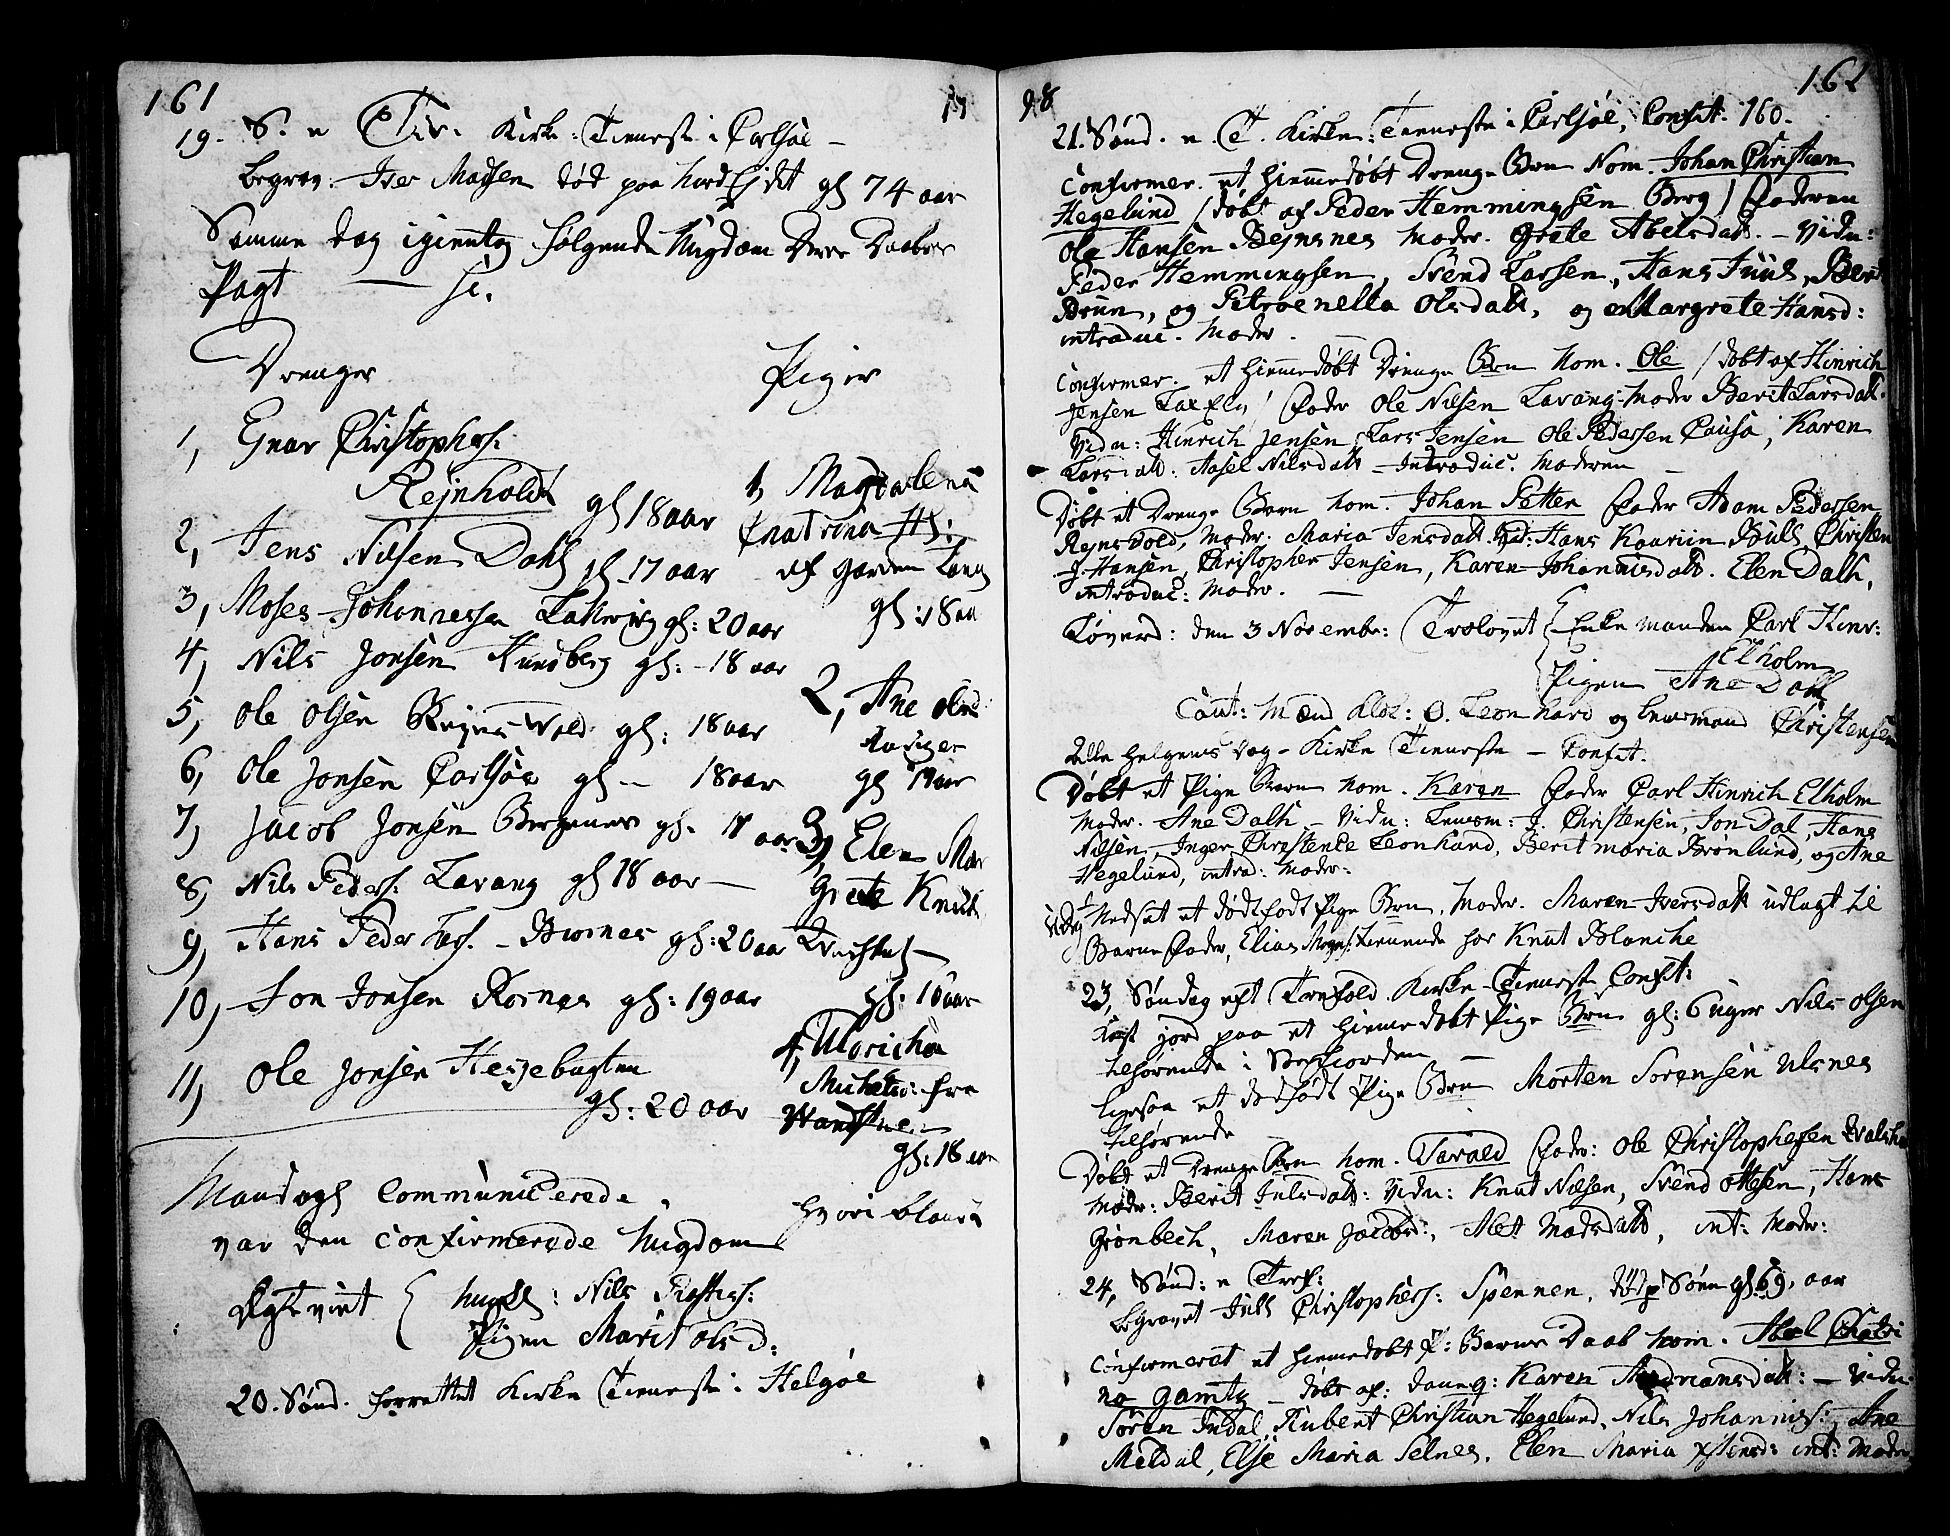 161
17
19. S. e Trin. Kirke-Tieneste i Carlsøe –
Begrav: Iver Madsen død paa Nord Ejdet gl 74 aar
Samme dag igientog følgende Ungdom deres Daabes
Pagt — sc.
Drenger
1, Enar Christophers:
Rejnholdt gl 18 aar
2, Jens Nilsen Dahl gl 17 aar
3, Moses Johannessen gl: 20 aar
4, Nils Jonsen Kundberg gl: – 18 aar
5, Ole Olsen Rejns Wold gl: 18 aar
6, Ole Jonsen Carlsøe gl – 18 aar
7, Jacob Jonsen gl. 17 aar
8, Nils Peders: Lavang gl 18 aar –
9, Hans Peder Lars. – gl: 20 aar
10, Jon Jonsen Kornes gl: 19 aar
11, Ole Jonsen Hessebugten
gl: 20 aar
Piger
1, Magdalena
Cathrina Hs:
af Garden Lang
gl: 18 aar
2, Ane Olsd
gl 19 aar
3, Elen Mar
Grete Knuds
gl: 16 aar
4, Ulricha
Michelsd: fra
gl: 18 aar
hvori blant
Mandagh Communicerede
var den confirmerede Ungdom
Ægte viet { Ungk: Nils
Pigen Marit Olsd:
20. Sønd. forrettet Kirke Tieneste i Helgøe
98
162
21. Sønd. e. T. Kirke-Tieneste i Carlsøe, Confit: 160.
Confirmer. et hiemmedøbt Drenge Barn Nom. Johan Christian
Hegelund / døbt af Peder Hemmingsen Berg / Faderen
Ole Hansen Bejnsnes Moder. Grete Abelsdatt. – Vidn:
Peder Hemmingsen, Svend Larsen, Hans Juul, Berit
Brun, og Petronella Olsdatt, og Margrete Hansd:
introduc. Moder. —
Confirmer. et hiemmedøbt Drenge Barn Nom. Ole / døbt af Hinrich
Jensen / Fader Ole Nilsen Lavang Moder Berit Larsdatt.
Vidn: Hinrich Jensen, Lars Jensen Ole Pedersen Causo, Karen
Larsdatt. Aasel Nilsdatt – Introduc. Moderen –
Døbt et Drenge Barn Nom. Johan Petter Fader Adam Pedersen
Rejnsvold, Moder. Maria Jensdatt. Vid: Hans Christen
J. Hansen, Christopher Jensen, Karen Johannisdatt. Elen Dalh,
introduc: Moder. —
Løverd: den 3 Novembr: Trolovet { Enke manden Carl Hinr:
Elholm
Pigen Ane Dahl
Caut: Mænd Klok: O. Leonhard og Lensmand Christensen
Alle Helgens Dag – Kirke Tieneste – Confit.
Døbt et Pige Barn Nom. Karen Fader Carl Hinrich Elholm
Moder. Ane Dalh – Vidn: Lensm: J. Christensen, Jon Dal, Hans
Nilsen, Inger Christence Leonhard, Berit Maria Brønlund, og Ane
Hegelund, intrad: Moder:
Nedsat et dødfødt Pige Barn, Moder. Maren Iversdatt udlagt til
Barne Fader, Elias Tienende hos Knut Blanche
23, Søndag eft Trefold. Kirke-Tieneste Confit:
Kast jord paa et hiemmedøbt Pige Barn gl: 6 uger Nils Olsen
tilhørende i –
Ligesaa et dødfødt Pige Barn Morten Sørensen Ulsnes
tilhørende
Døbt et Drenge Barn Nom. Tarald Fader: Ole Christophersen
Moder: Berit Julsdatt: Vidn: Knut Nilsen, Svend Ottesen, Hans
Grønbech, Maren Jacobsd:, Abet Madsdatt, int: Moder:
24, Sønd: e Tref:
Begravet Juls Christophers: Spennen, død p Søen gl 69, aar
Confirmeret et hiemmedøbt P: Barns Daab Nom. Abel Cathri
na Gamst – døbt af: Karen Andreansdatt: – Vidn:
Søren Indal, Rubert Christian Hegelund, Nils Johannes:, Ane
Meldal, Else Maria Selnes, Elen Maria int: Moder